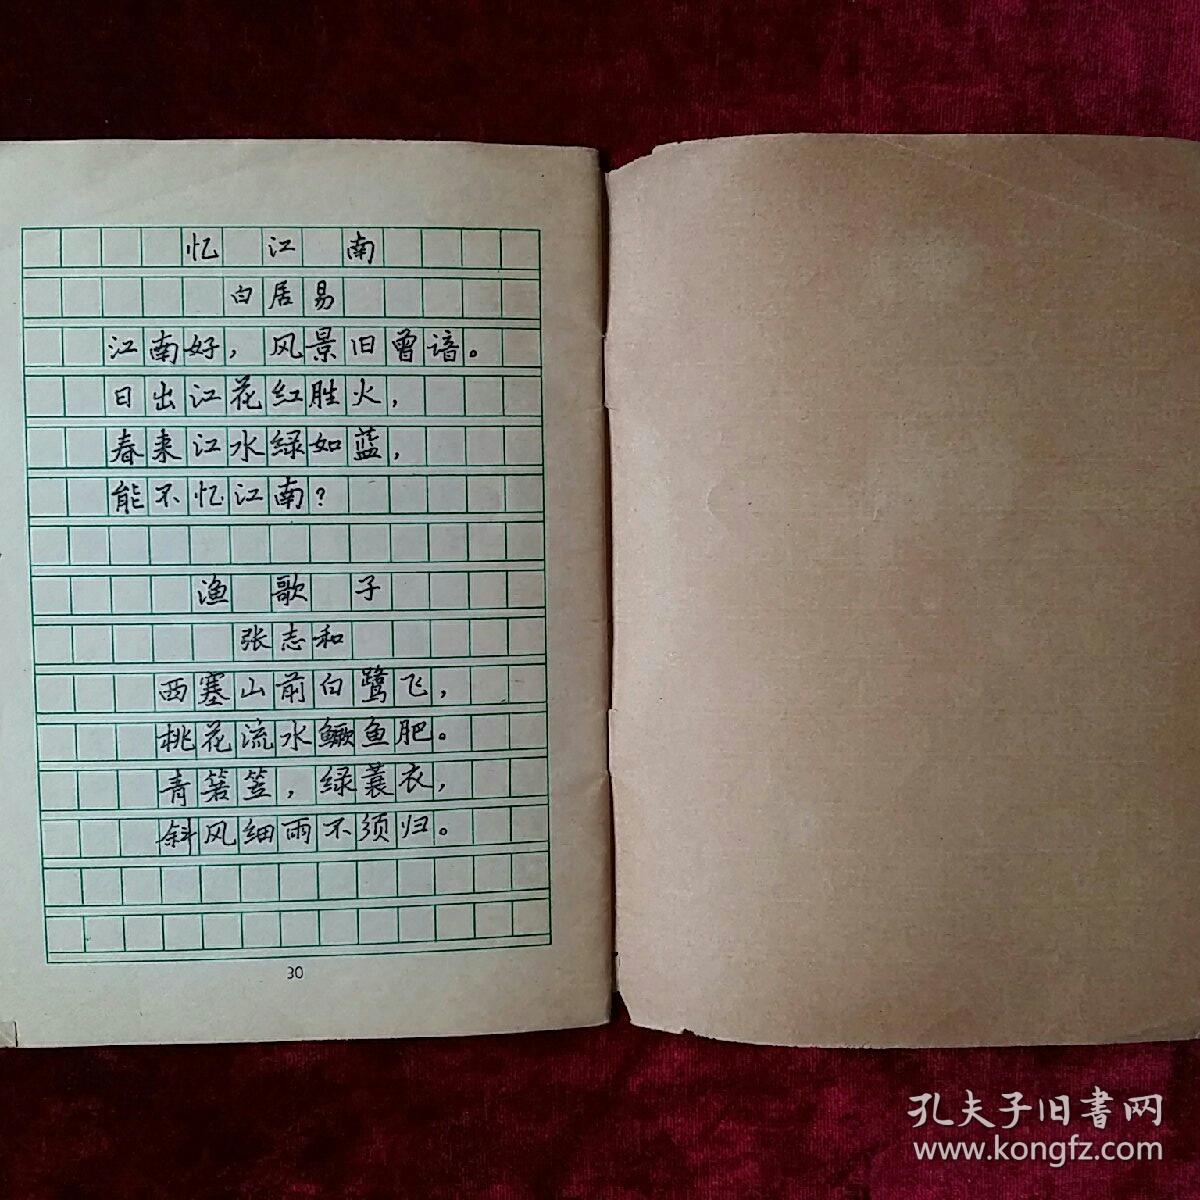 忆江南
白居易
江南好，风景旧曾谙。
日出江花红胜火，
春来江水绿如蓝，
能不忆江南？
渔歌子
张志和
西塞山前白鹭飞，
桃花流水鳜鱼肥。
青箬笠，绿蓑衣，
斜风细雨不须归。
30
孔夫子旧書网
www.kongfz.com